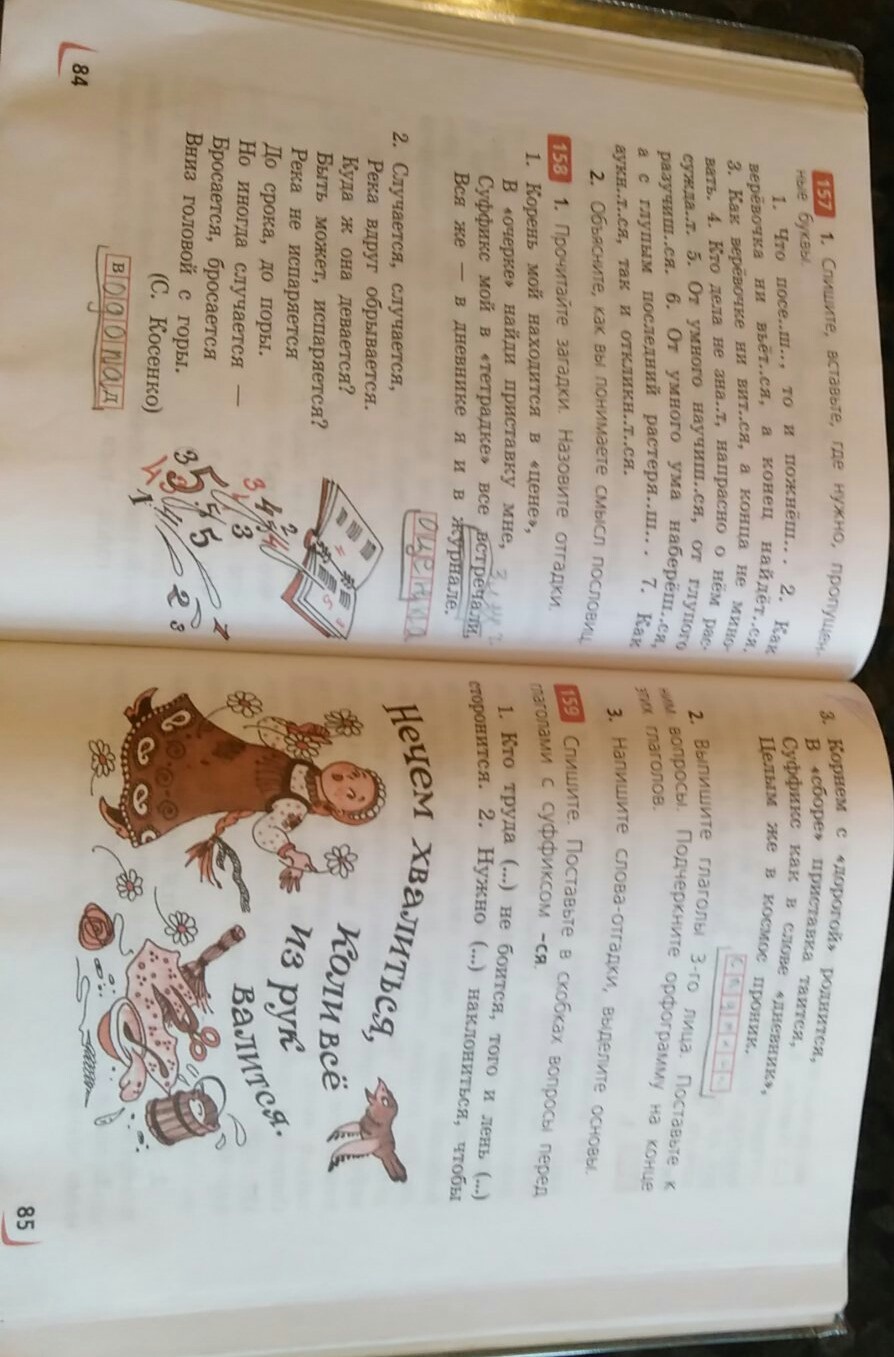 157 1. Спишите, вставьте, где нужно, пропущен-
ные буквы.
1. Что посе..ш.., то и пожнёш.. . 2. Как
верёвочка ни вьёт..ся, а конец найдёт..ся.
3. Как верёвочке ни вит..ся, а конца не мино-
вать. 4. Кто дела не зна..т, напрасно о нём рас-
сужда..т. 5. От умного научиш..ся, от глупого
разучиш..ся. 6. От умного ума наберёш..ся,
а с глупым последний растеря..ш.. . 7. Как
аукн..т..ся, так и откликн..т..ся.
2. Объясните, как вы понимаете смысл пословиц.
158 1. Прочитайте загадки. Назовите отгадки.
1. Корень мой находится в «цене»,
В «очерке» найди приставку мне,
Суффикс мой в «тетрадке» все встречали,
Вся же — в дневнике я и в журнале.
оценка
2. Случается, случается,
Река вдруг обрывается.
Куда ж она девается?
Быть может, испаряется?
Река не испаряется
До срока, до поры.
Но иногда случается —
Бросается, бросается
Вниз головой с горы.
(С. Косенко)
водопад
84
3. Корнем с «дорогой» роднится,
В «сборе» приставка таится,
Суффикс как в слове «дневник»,
Целым же в космос проник.
2. Выпишите глаголы 3-го лица. Поставьте к
ним вопросы. Подчеркните орфограмму на конце
этих глаголов.
3. Напишите слова-отгадки, выделите основы.
159 Спишите. Поставьте в скобках вопросы перед
глаголами с суффиксом -ся.
1. Кто труда (...) не боится, того и лень (...)
сторонится. 2. Нужно (...) наклониться, чтобы
Нечем хвалиться,
коли всё
из рук
валится.
85